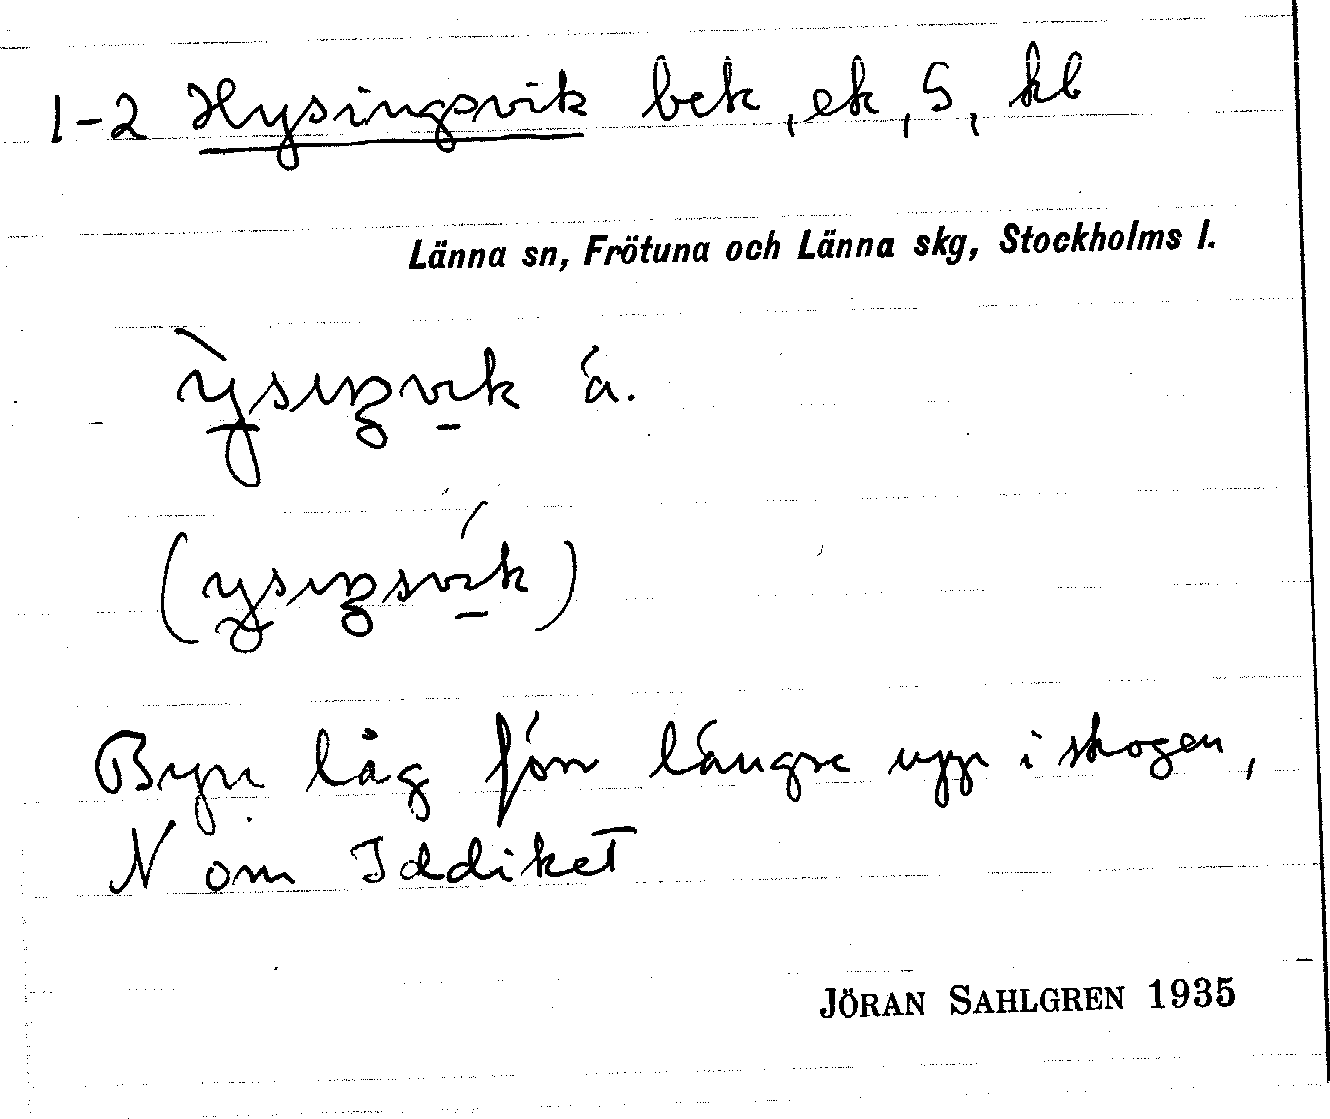 1-2 Hysingsvik bek, ek, S, kb
Länna sn, Frötuna och Länna skg, Stockholms l.
ỳsiŋvik á.
(ysiŋsvík)
Byn låg förr längre upp i skogen,
N om Iddiket
JÖRAN SAHLGREN 1935